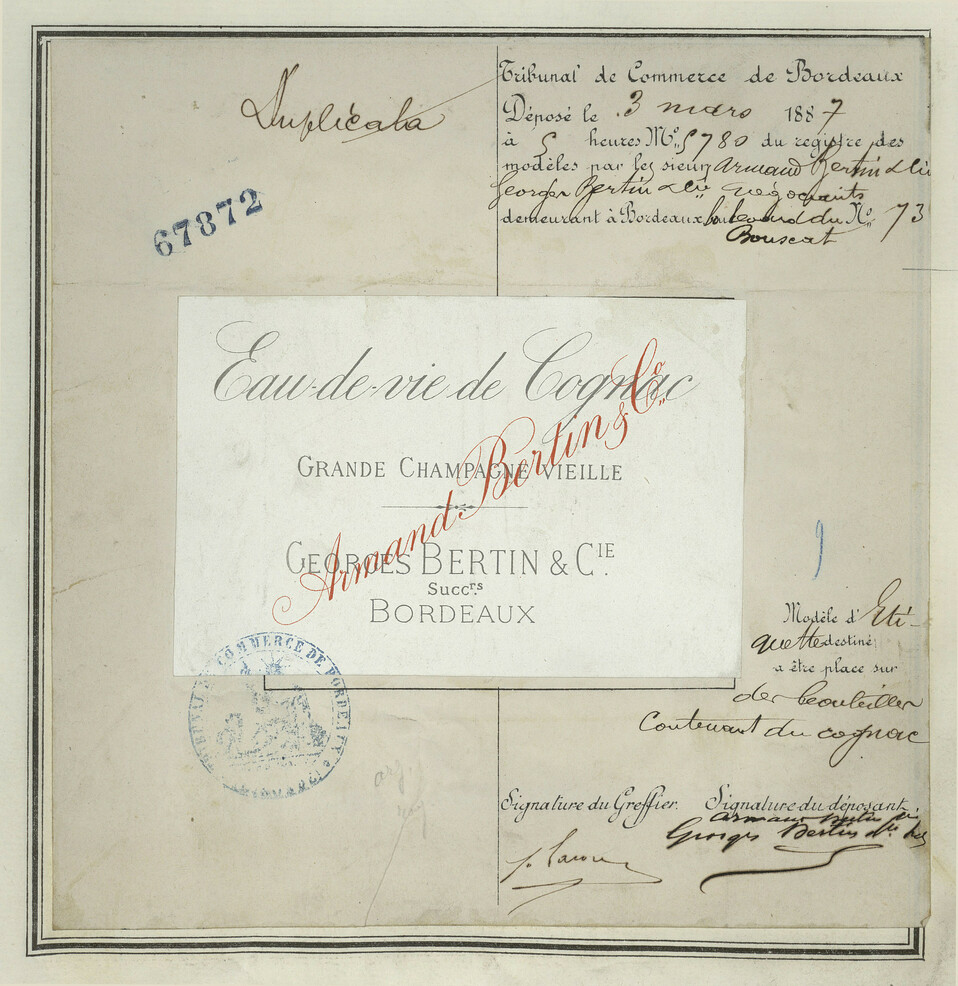 Duplicata
67872
Tribunal de Commerce de Bordeaux
Déposé le 3 mars 1887
à 5 heures Nº 5780 du registre des
modèles par les sieurs Armand Bertin & Cie
Georges Bertin & Cie négociants
demeurant à Bordeaux boulevard du Nº 73
Bouscat
Eau-de-vie de Cognac
Armand Bertin & Cº
GRANDE CHAMPAGNE VIEILLE
GEORGES BERTIN & CIE
Succrs
BORDEAUX
TRIBUNAL DE COMMERCE DE BORDEAUX
Modèle d'Eti-
quette destiné
a être place sur
des bouteilles
Contenant du cognac
Signature du Greffier. Signature du déposant,
Armand Bertin
Georges Bertin